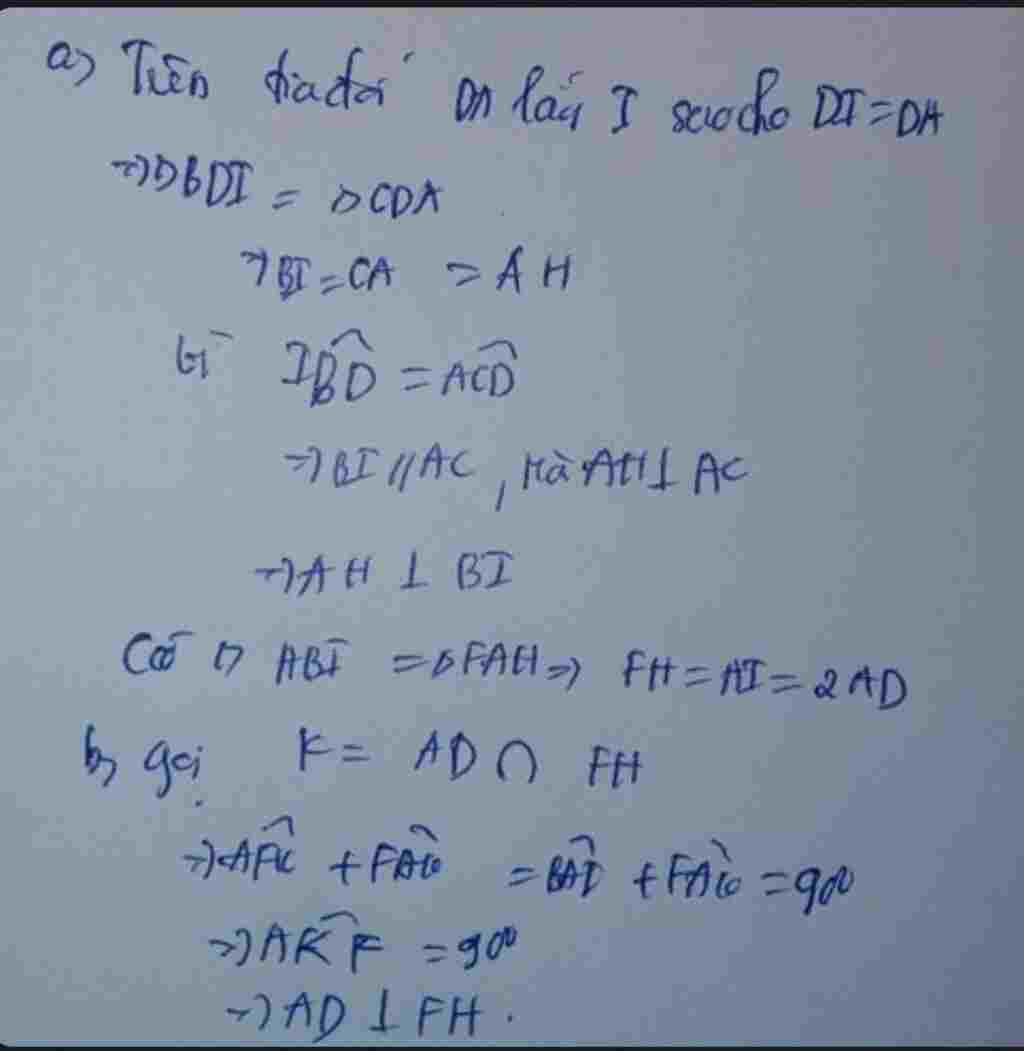 a) Trên tia đối DA lấy I sao cho DI = DA
=> △BDI = △CDA
=> BI = CA = AH
IBD̂ = ACD̂
=> BI // AC, mà AH ⊥ AC
=> AH ⊥ BI
Có △ ABI = △FAH => FH = AI = 2AD
b) gọi K = AD ∩ FH
=> AFK̂ + FAK̂ = BAÎ + FAK̂ = 90°
=> AKF̂ = 90°
=> AD ⊥ FH.